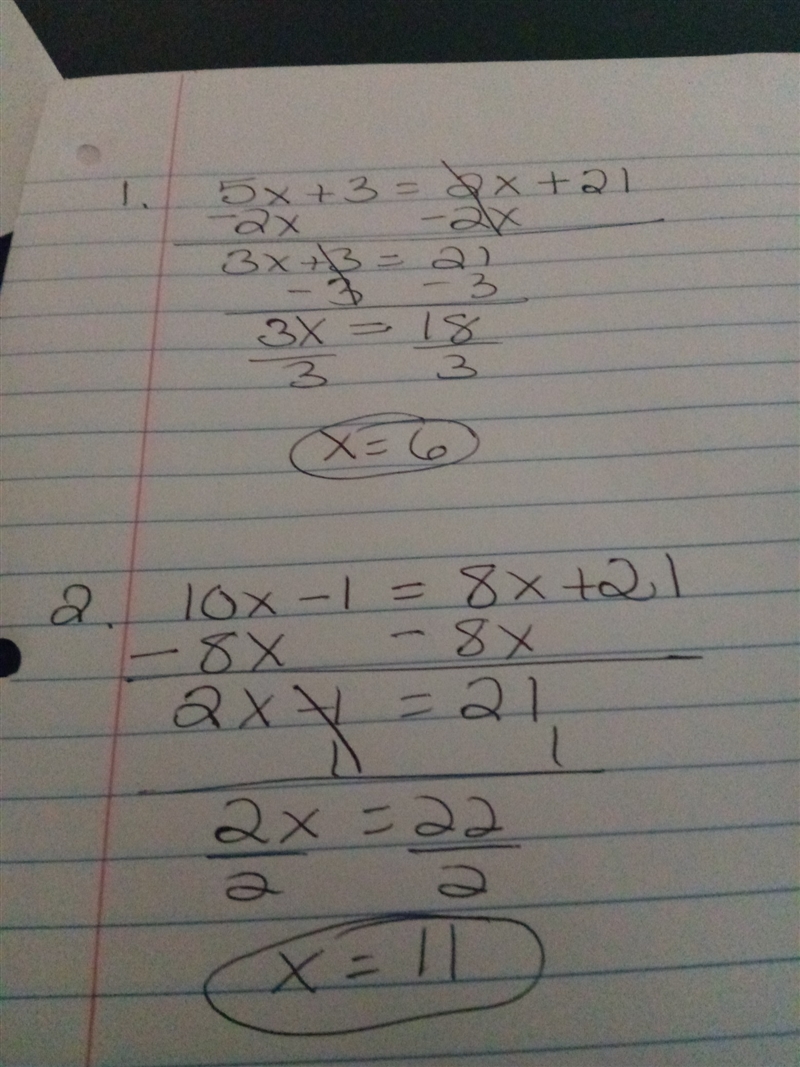 1. 5x + 3 = 2x + 21
-2x -2x
3x + 3 = 21
- 3 - 3
3x = 18
3 3
x = 6
2. 10x - 1 = 8x + 21
- 8x - 8x
2x - 1 = 21
1 1
2x = 22
2 2
x = 11